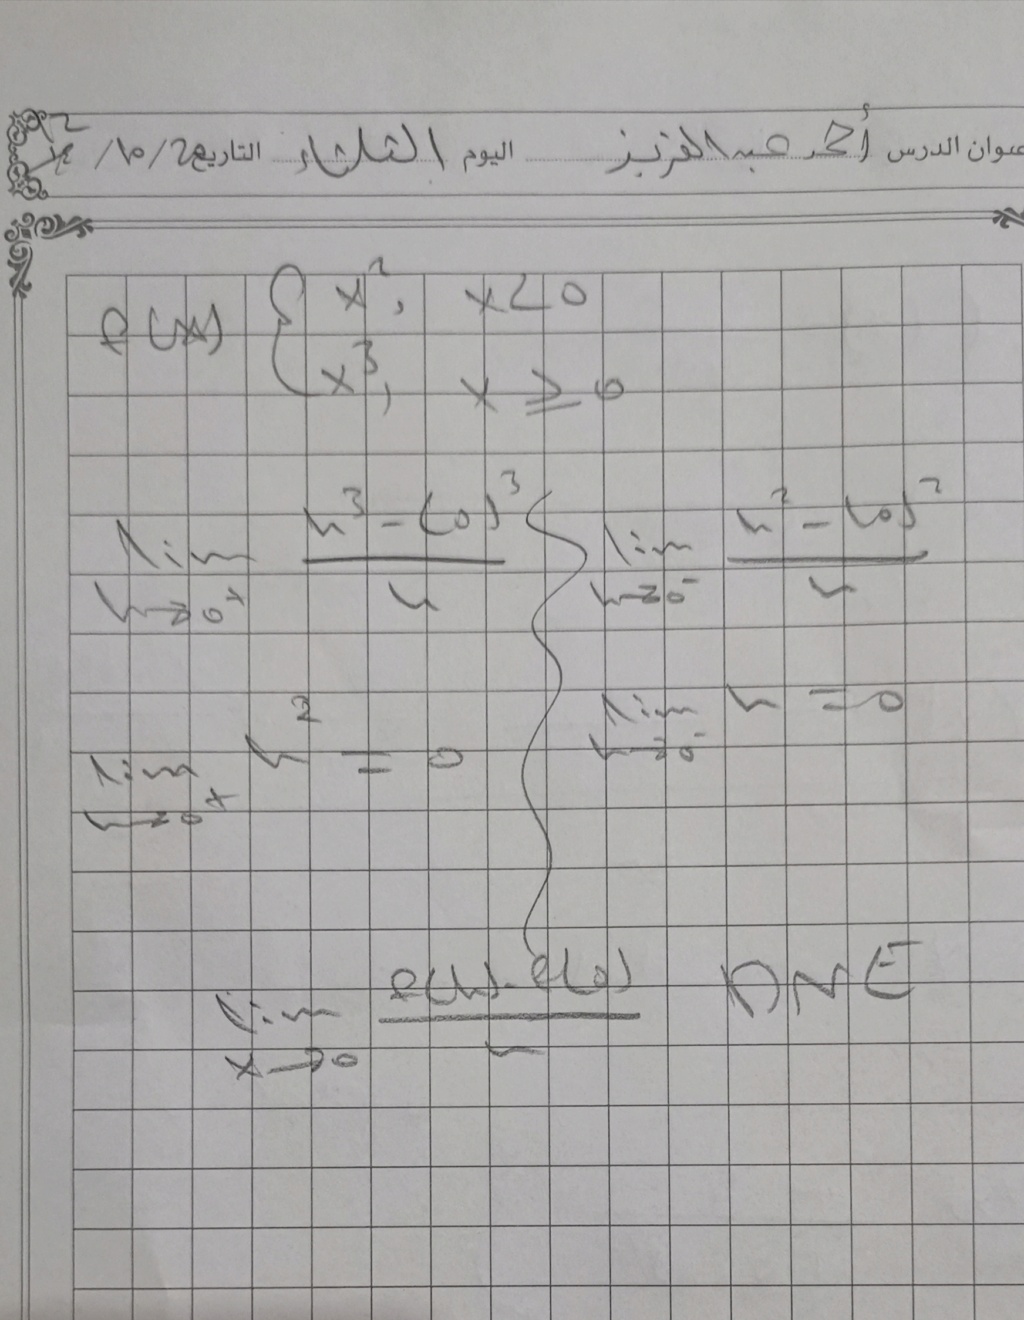 عنوان الدرس أحمد عبد العزيز اليوم الثلاثاء التاريخ
f(x) { x², x<0
x³, x ≥ 0
lim h→0⁺ (h³ - (0)³)/h
lim h→0⁻ (h² - (0)²)/h
lim h→0⁺ h² = 0
lim h→0⁻ h = 0
lim x→0 (f(h)-f(0))/h DNE